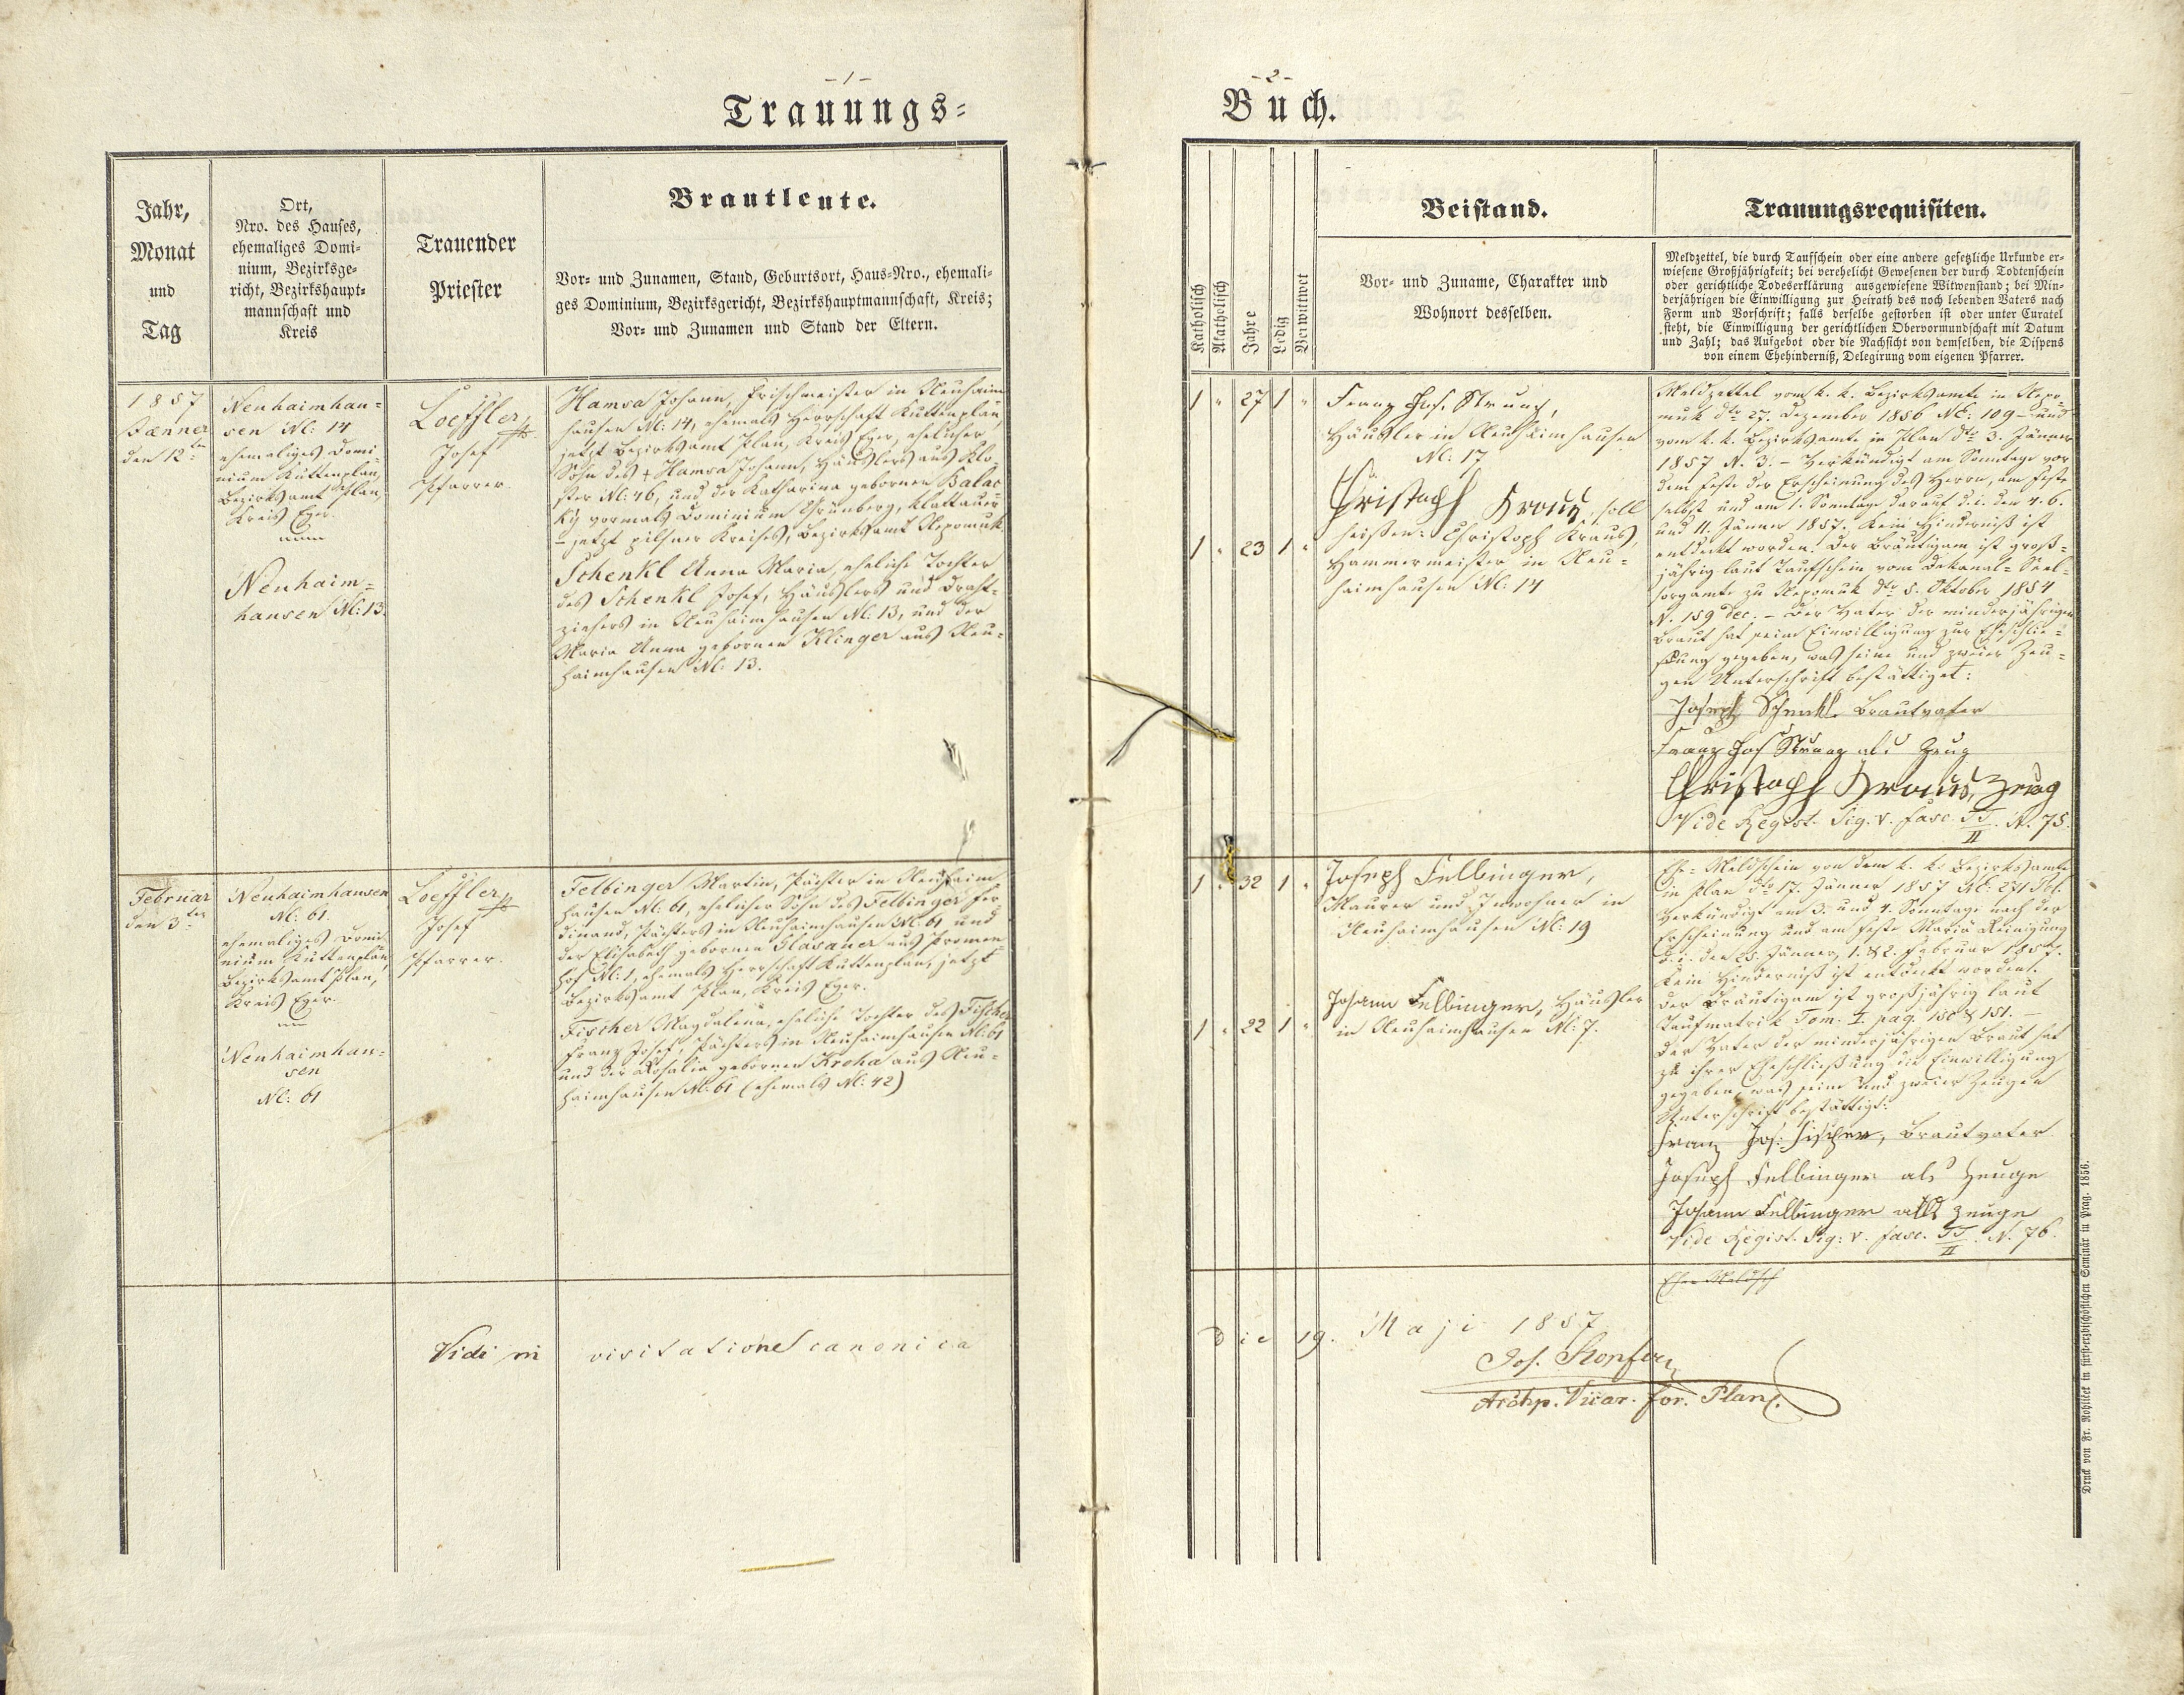 - 1 -
Trauungs=
Jahr,
Monat
und
Tag
Ort,
Nro. des Hauses,
ehemaliges Domi-
nium, Bezirksge-
richt, Bezirkshaupt-
mannschaft und
Kreis
Trauender
Priester
Brautleute.
Vor- und Zunamen, Stand, Geburtsort, Haus-Nro., ehemali-
ges Dominium, Bezirksgericht, Bezirkshauptmannschaft, Kreis;
Vor- und Zunamen und Stand der Eltern.
1857
Jænner
den 12ten
Neuhaimhau=
sen N: 14
ehemaliges Domi-
nium Kuttenplan,
Bezirksamt Plan,
Kreis Eger.
Neuhaim=
hausen N: 13.
Loeffler
Josef
Pfarrer.
Hamsa Johann, Frischmeister in Neuhaim
hausen N: 14, ehemals Herrschaft Kuttenplan,
jetzt Bezirksamt Plan, Kreis Eger, ehelicher
Sohn des + Hamsa Johann, Häuslers aus Klo-
ster N: 46, und der Katharina gebornen Balac
ky vormals Dominium Grünberg, Klattauer
- jetzt pilsner Kreises, Bezirksamt Nepomuk.
Schenkl Anna Maria, eheliche Tochter
des Schenkl Josef, Häuslers und Draht-
ziehers in Neuhaimhausen N: 13, und der
Maria Anna gebornen Klinger aus Neu-
haimhausen N: 13.
Februar
den 3ten
Neuhaimhausen
N: 61.
ehemaliges Domi-
nium Kuttenplan,
Bezirksamt Plan,
Kreis Eger.
Neuhaimhau=
sen
N: 61
Loeffler
Josef
Pfarrer.
Felbinger Martin, Pächter in Neuhaim
hausen N: 61, ehelicher Sohn des Felbinger Fer
dinand, Pächters in Neuhaimhausen N: 61 und
der Elisabeth gebornen Glasauer aus Promen
hof N: 1, ehemals Herrschaft Kuttenplan, jetzt
Bezirksamt Plan, Kreis Eger.
Fischer Magdalena, eheliche Tochter des Fischer
Franz Josef, Pächters in Neuhaimhausen N: 61
und der Rosalia gebornen Kroha aus Neu-
haimhausen N: 61 (ehemals N: 42)
Vidi in visitatione canonica
- 2 -
Buch.
Katholisch
Akatholisch
Jahre
Ledig
Verwittwet
Beistand.
Vor- und Zuname, Charakter und
Wohnort desselben.
Trauungsrequisiten.
Meldzettel, die durch Taufschein oder eine andere gesetzliche Urkunde er-
wiesene Großjährigkeit; bei verehelicht Gewesenen der durch Todtenschein
oder gerichtliche Todeserklärung ausgewiesene Witwenstand; bei Min-
derjährigen die Einwilligung zur Heirath des noch lebenden Vaters nach
Form und Vorschrift; falls derselbe gestorben ist oder unter Curatel
steht, die Einwilligung der gerichtlichen Obervormundschaft mit Datum
und Zahl; das Aufgebot oder die Nachsicht von demselben, die Dispens
von einem Ehehinderniß, Delegirung vom eigenen Pfarrer.
1 " 27 1 "
1 " 23 1 "
Franz Jos. Strunz,
Häusler in Neuhaimhausen
N: 17
Christoph Krouß, soll
heißen: Christoph Kraus,
Hammermeister in Neu-
haimhausen N: 14
Meldzettel vom k. k. Bezirksamte in Nepo-
muk dto 27. Dezember 1856 N: 109 - und
vom k. k. Bezirksamte in Plan dto 3. Jänner
1857 N. 3. - Verkündigt am Sonntage vor
dem Feste der Erscheinung des Herrn, am Feste
selbst und am 1. Sonntage darauf d. i. den 4. 6.
und 11. Jänner 1857. Kein Hinderniß ist
entdeckt worden. Der Bräutigam ist groß-
jährig laut Taufschein vom Dekanal-Seel-
sorgamte zu Nepomuk dto 5. Oktober 1854
N. 159 Dec. - Der Vater der minderjährigen
Braut hat seine Einwilligung zur Eheschlie-
ßung gegeben, was seine und zweier Zeu-
gen Unterschrift bestättiget:
Joseph Schenkl Brautvater
Franz Jos Strunz als Zeug
Christoph Kraus, Zeug
Vide Regist. Sig. V. fasc. II N. 75.
1 " 32 1 "
1 " 22 1 "
Joseph Felbinger,
Maurer und Inwohner in
Neuhaimhausen N: 19
Johann Felbinger, Häusler
in Neuhaimhausen N: 7.
Ehe-Meldschein von dem k. k. Bezirksamte
in Plan dto 17. Jänner 1857 N: 271
Verkündigt am 3. und 4. Sonntage nach der
Erscheinung und am Feste Mariä Reinigung
d. i. den 25. Jänner, 1. & 2. Februar 1857.
Kein Hinderniß ist entdeckt worden.
Der Bräutigam ist großjährig laut
Taufmatrik Tom. I. pag. 150 & 151. -
Der Vater der minderjährigen Braut hat
zu ihrer Eheschließung die Einwilligung
gegeben, was seine und zweier Zeugen
Unterschrift bestättigt:
Franz Jos: Fischer, Brautvater
Joseph Felbinger als Zeuge
Johann Felbinger als Zeuge
Vide Regist. Sig: V. fasc. II N. 76.
Ehe-Meldsch
Die 19. Maji 1857
Jos.
Archp. Vicar. for. Plan.
Druck von Fr. Rohliček in fürst-erzbischöflichen Seminär in Prag. 1856.